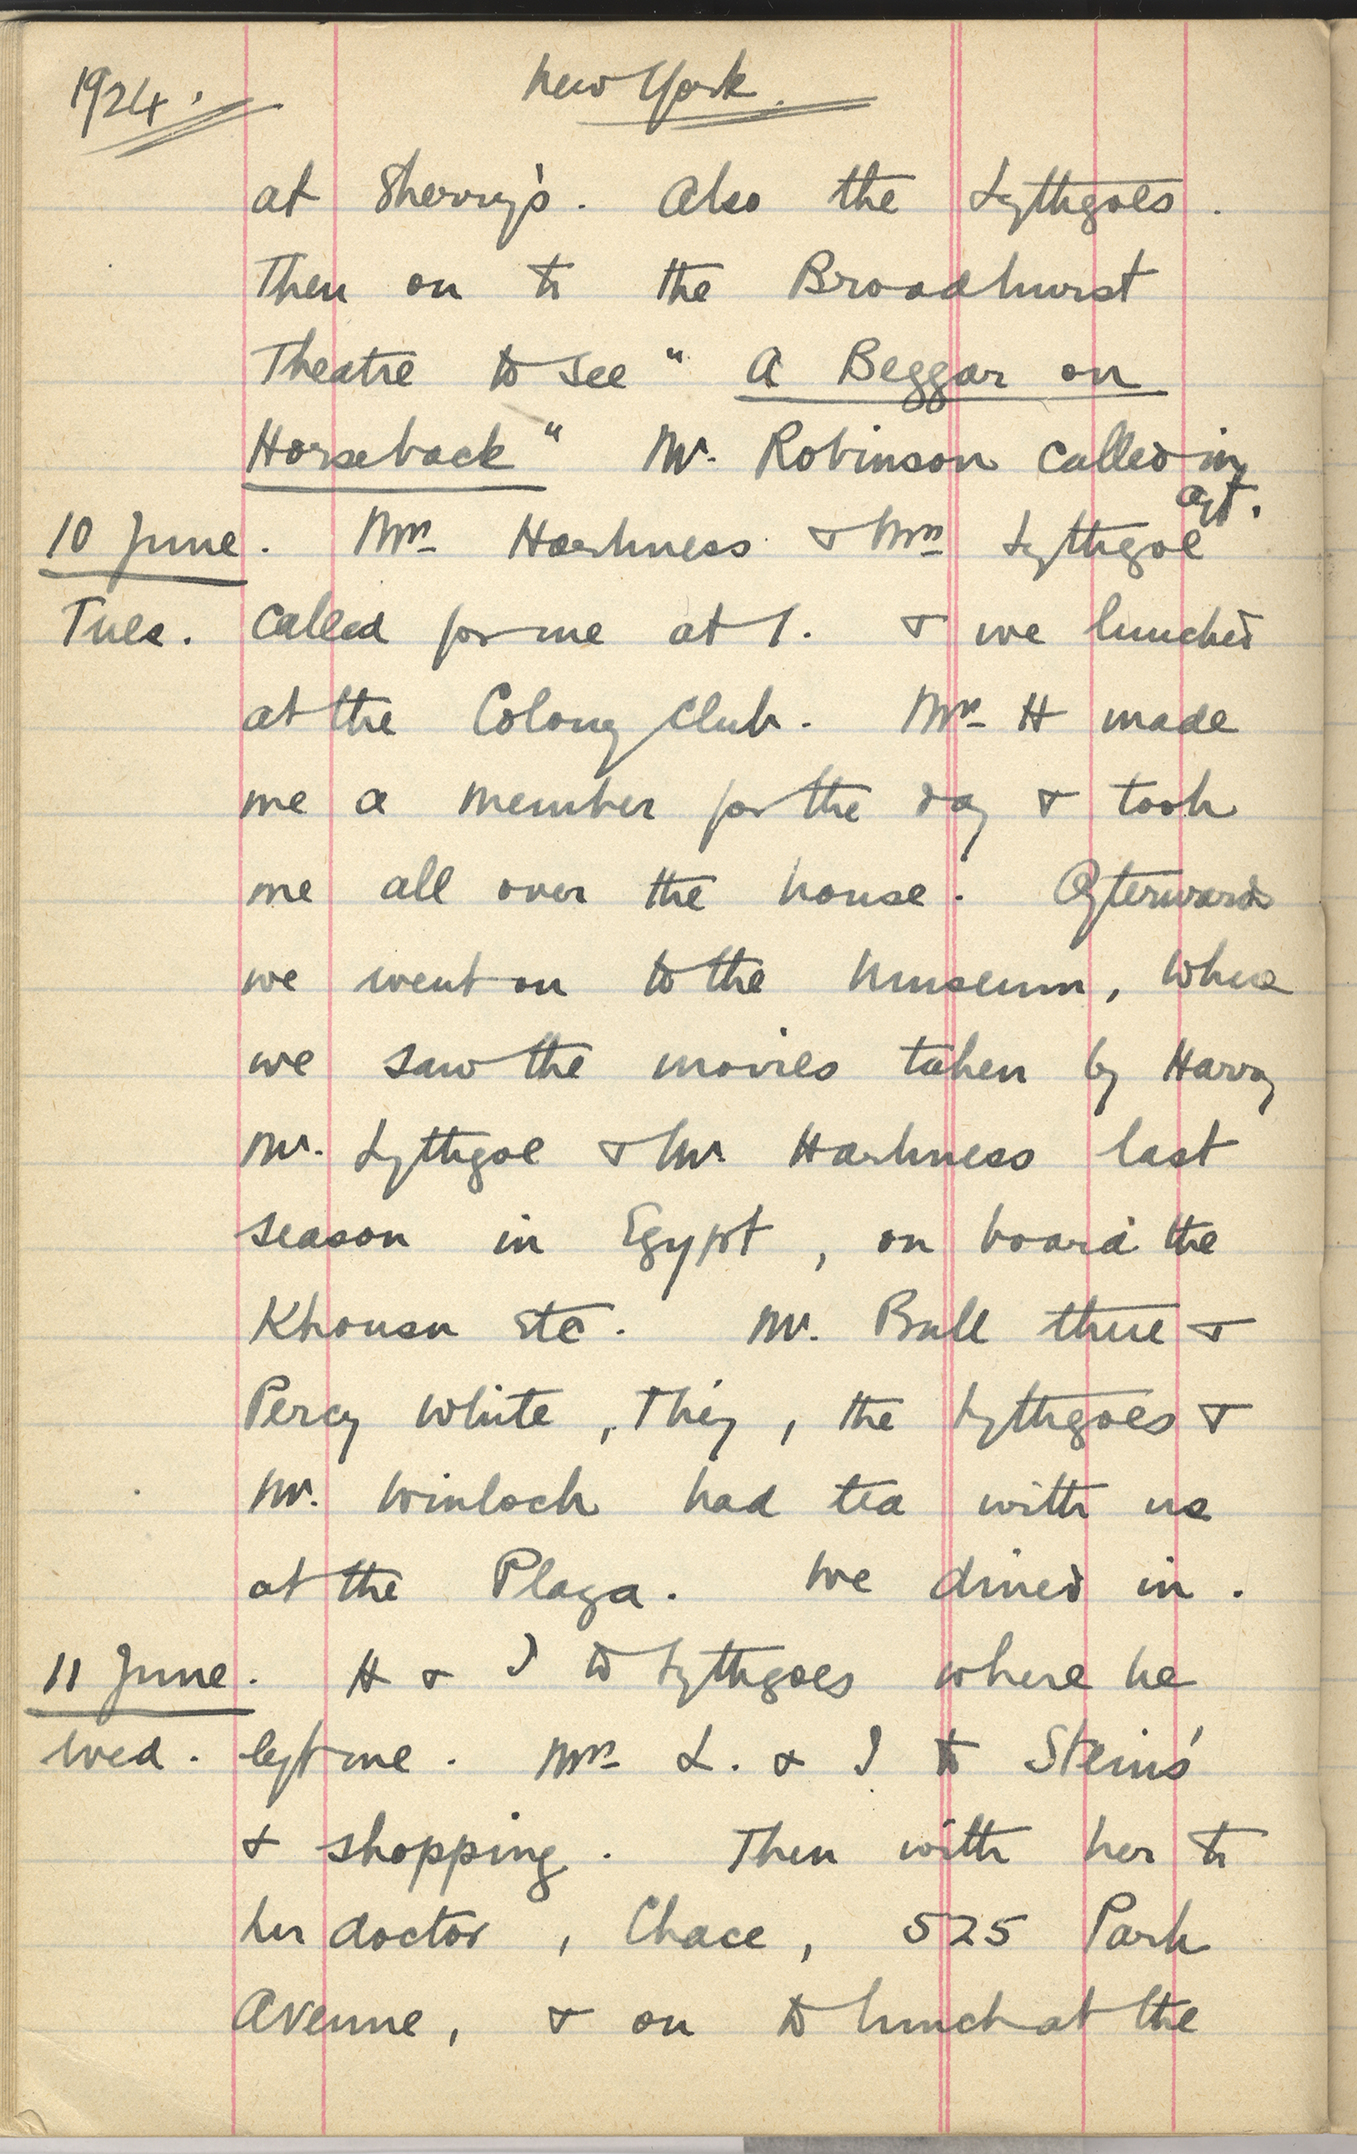 1924. New York.
at Sherry's. Also the Lythgoes.
Then on to the Broadhurst
Theatre to see " A Beggar on
Horseback" Mr. Robinson called in
aft.
10 June. Mrs Harkness & Mrs Lythgoe
Tues. called for me at 1. & we lunched
at the Colony Club. Mrs H made
me a member for the day & took
me all over the house. Afterwards
we went on to the Museum, where
we saw the movies taken by Harry
Mr. Lythgoe & Mr. Harkness last
season in Egypt, on board the
Khonsu etc. Mr. Bull there &
Percy White, They, the Lythgoes &
Mr. Winlock had tea with us
at the Plaza. We dined in.
11 June. H & I to Lythgoes where he
Wed. left me. Mrs L. & I to Steins'
& shopping. Then with her to
her doctor, Chace, 525 Park
Avenue, & on to lunch at the